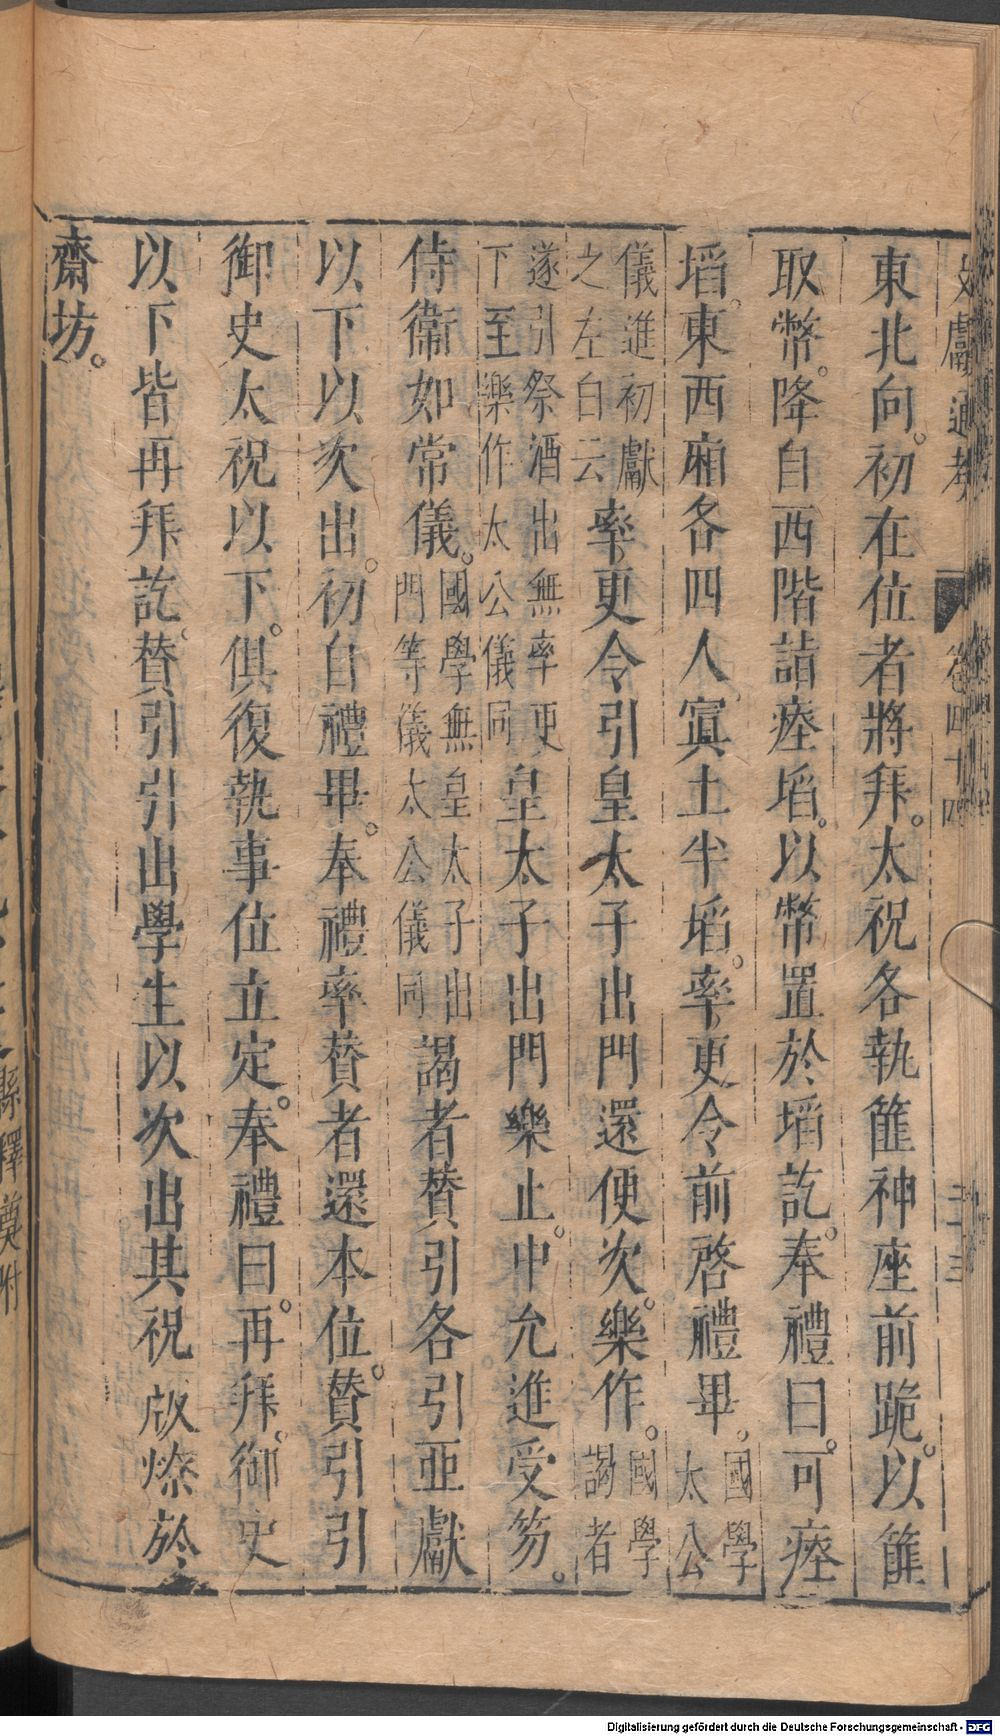 文獻通考 卷四十四 二十三
東北向。初在位者將拜。太祝各執篚神座前跪。以篚
取幣。降自西階詣瘞埳。以幣置於埳訖。奉禮曰。可瘞
埳。東西廂各四人寘土半埳。率更令前啓禮畢。國學太公
儀進初獻之左白云率更令引皇太子出門還便次。樂作。國學謁者
遂引祭酒出無率更下至樂作太公儀同皇太子出門樂止。中允進受笏。
侍衞如常儀。國學無皇太子出門等儀太公儀同謁者贊引各引亞獻
以下以次出。初自禮畢。奉禮率贊者還本位。贊引引
御史太祝以下。俱復執事位立定。奉禮曰。再拜。御史
以下皆再拜訖。贊引引出學生以次出其祝版燎於
齋坊。
縣釋奠附
Digitalisierung gefördert durch die Deutsche Forschungsgemeinschaft - DFG